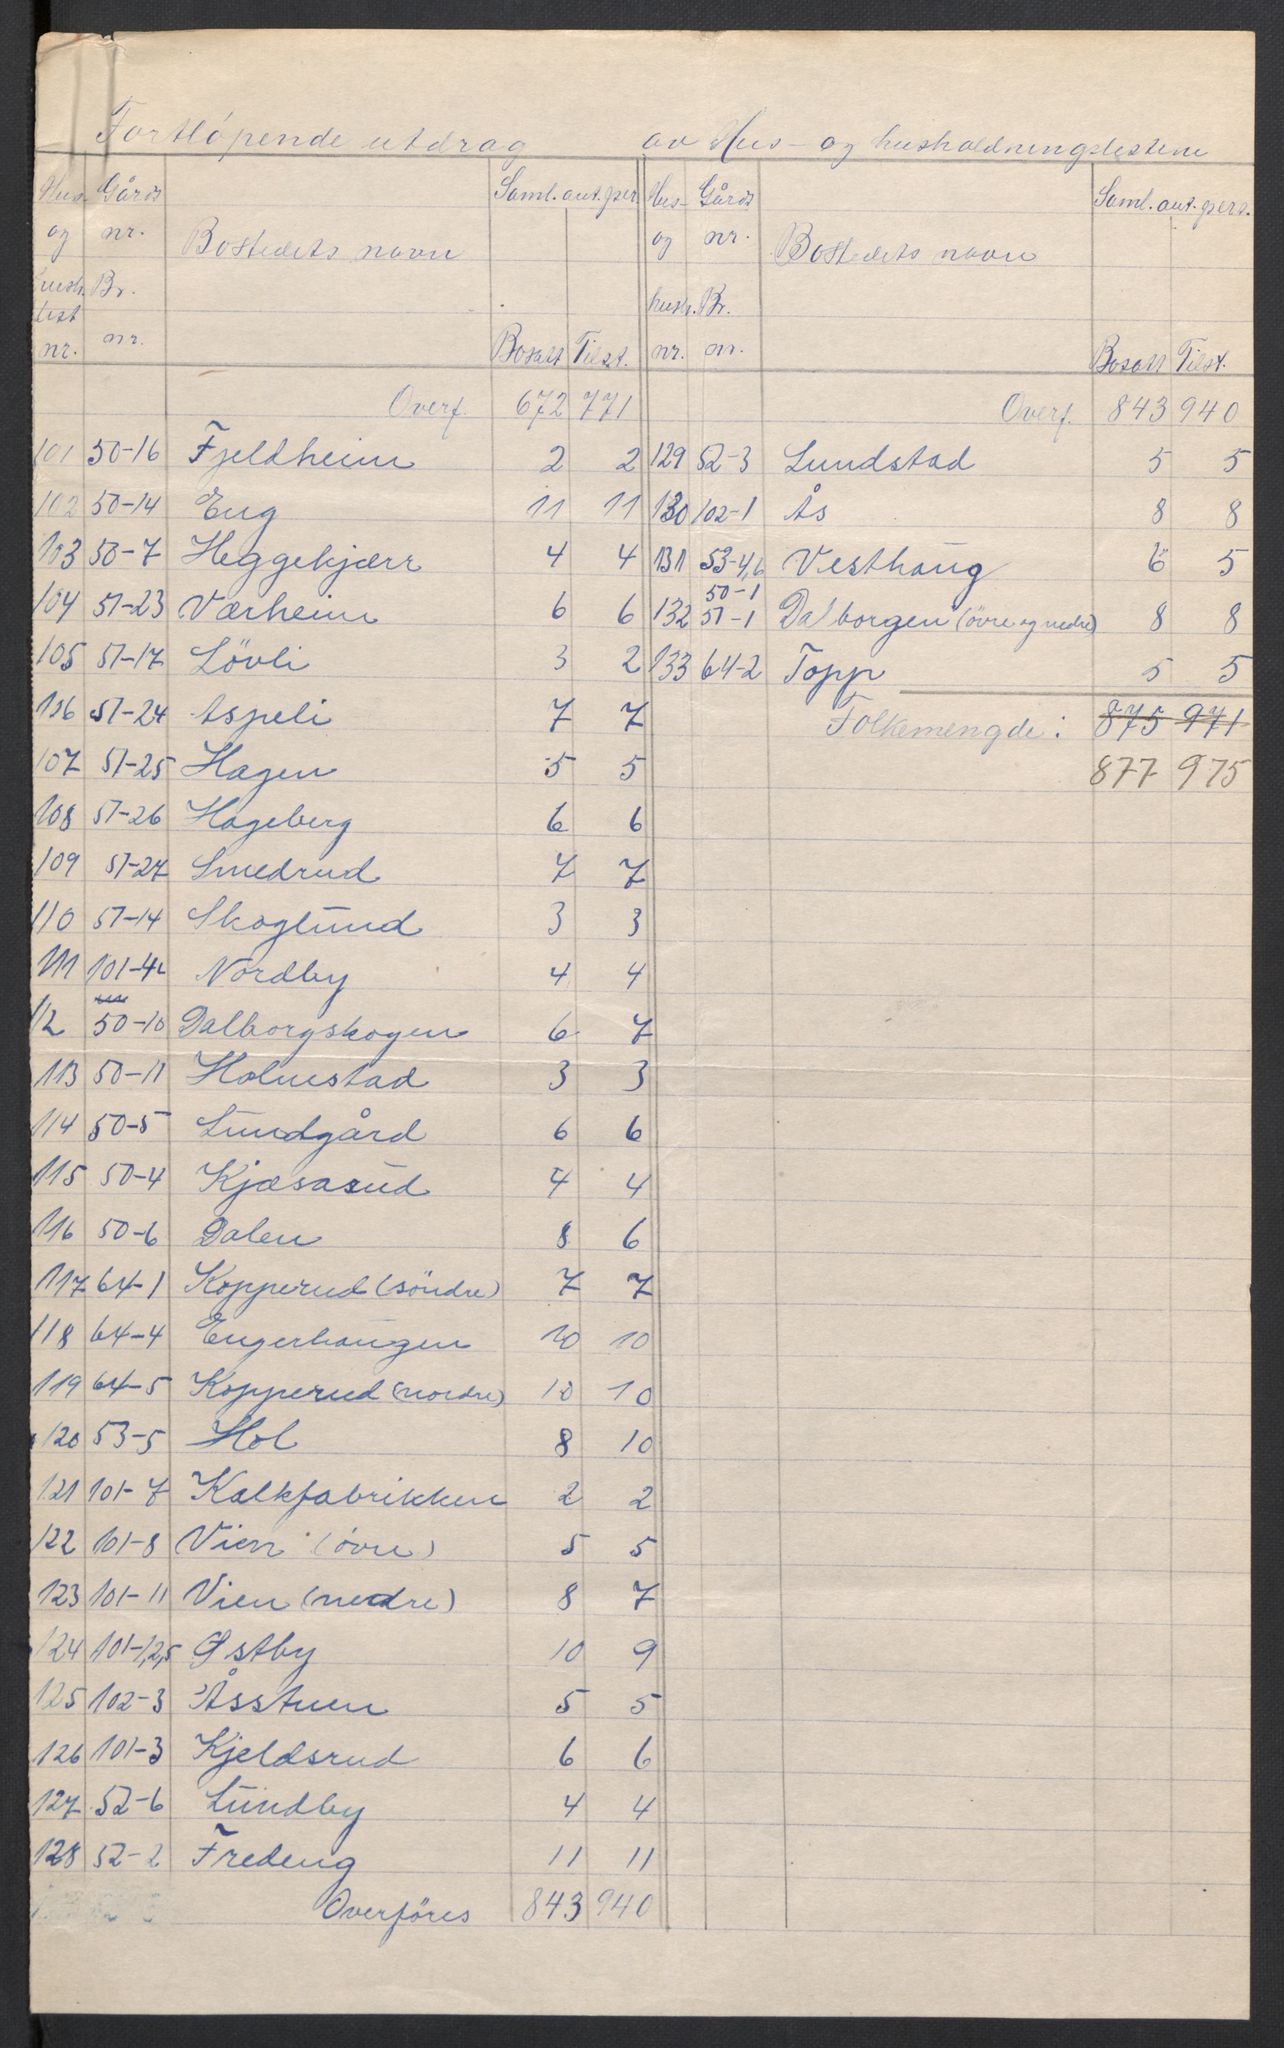 Fortløpende utdrag av Hus- og husholdningslistene
Hus- og hush. list nr. Gårds nr. Br. nr. Bostedets navn Saml. ant. per. Bosatt Tilst.
Overf. 672 771
101 50-16 Fjeldheim 2 2
102 50-14 Eng 11 11
103 50-7 Heggekjærr 4 4
104 51-23 Værheim 6 6
105 51-17 Lövli 3 2
106 51-24 Aspeli 7 7
107 51-25 Hagen 5 5
108 51-26 Hageberg 6 6
109 51-27 Smedrud 7 7
110 51-14 Skoglund 3 3
111 101-4 Nordby 4 4
112 50-10 Dalborgskogen 6 7
113 50-11 Holmestad 3 3
114 50-5 Lundgård 6 6
115 50-4 Kjæsarud 4 4
116 50-6 Dalen 8 6
117 64-1 Kopperud (söndre) 7 7
118 64-4 Engerhaugen 10 10
119 64-5 Kopperud (nordre) 10 10
120 53-5 Hol 8 10
121 101-7 Kalkfabrikken 2 2
122 101-8 Vien (övre) 5 5
123 101-11 Vien (nedre) 8 7
124 101-1,2,5 Østby 10 9
125 102-3 Åsstuen 5 5
126 101-3 Kjeldsrud 6 6
127 52-6 Lundby 4 4
128 52-2 Fredeng 11 11
Overföres 843 940
Hus- og hush. nr. Gårds nr. Br. nr. Bostedets navn Saml. ant. pers. Bosatt Tilst.
Overf. 843 940
129 52-3 Lundstad 5 5
130 102-1 Ås 8 8
131 53-4,6 Vesthaug 6 5
50-1
132 51-1 Dalborgen (övre og nedre) 8 8
133 64-2 Topp 5 5
Folkemengde: 875 971
877 975